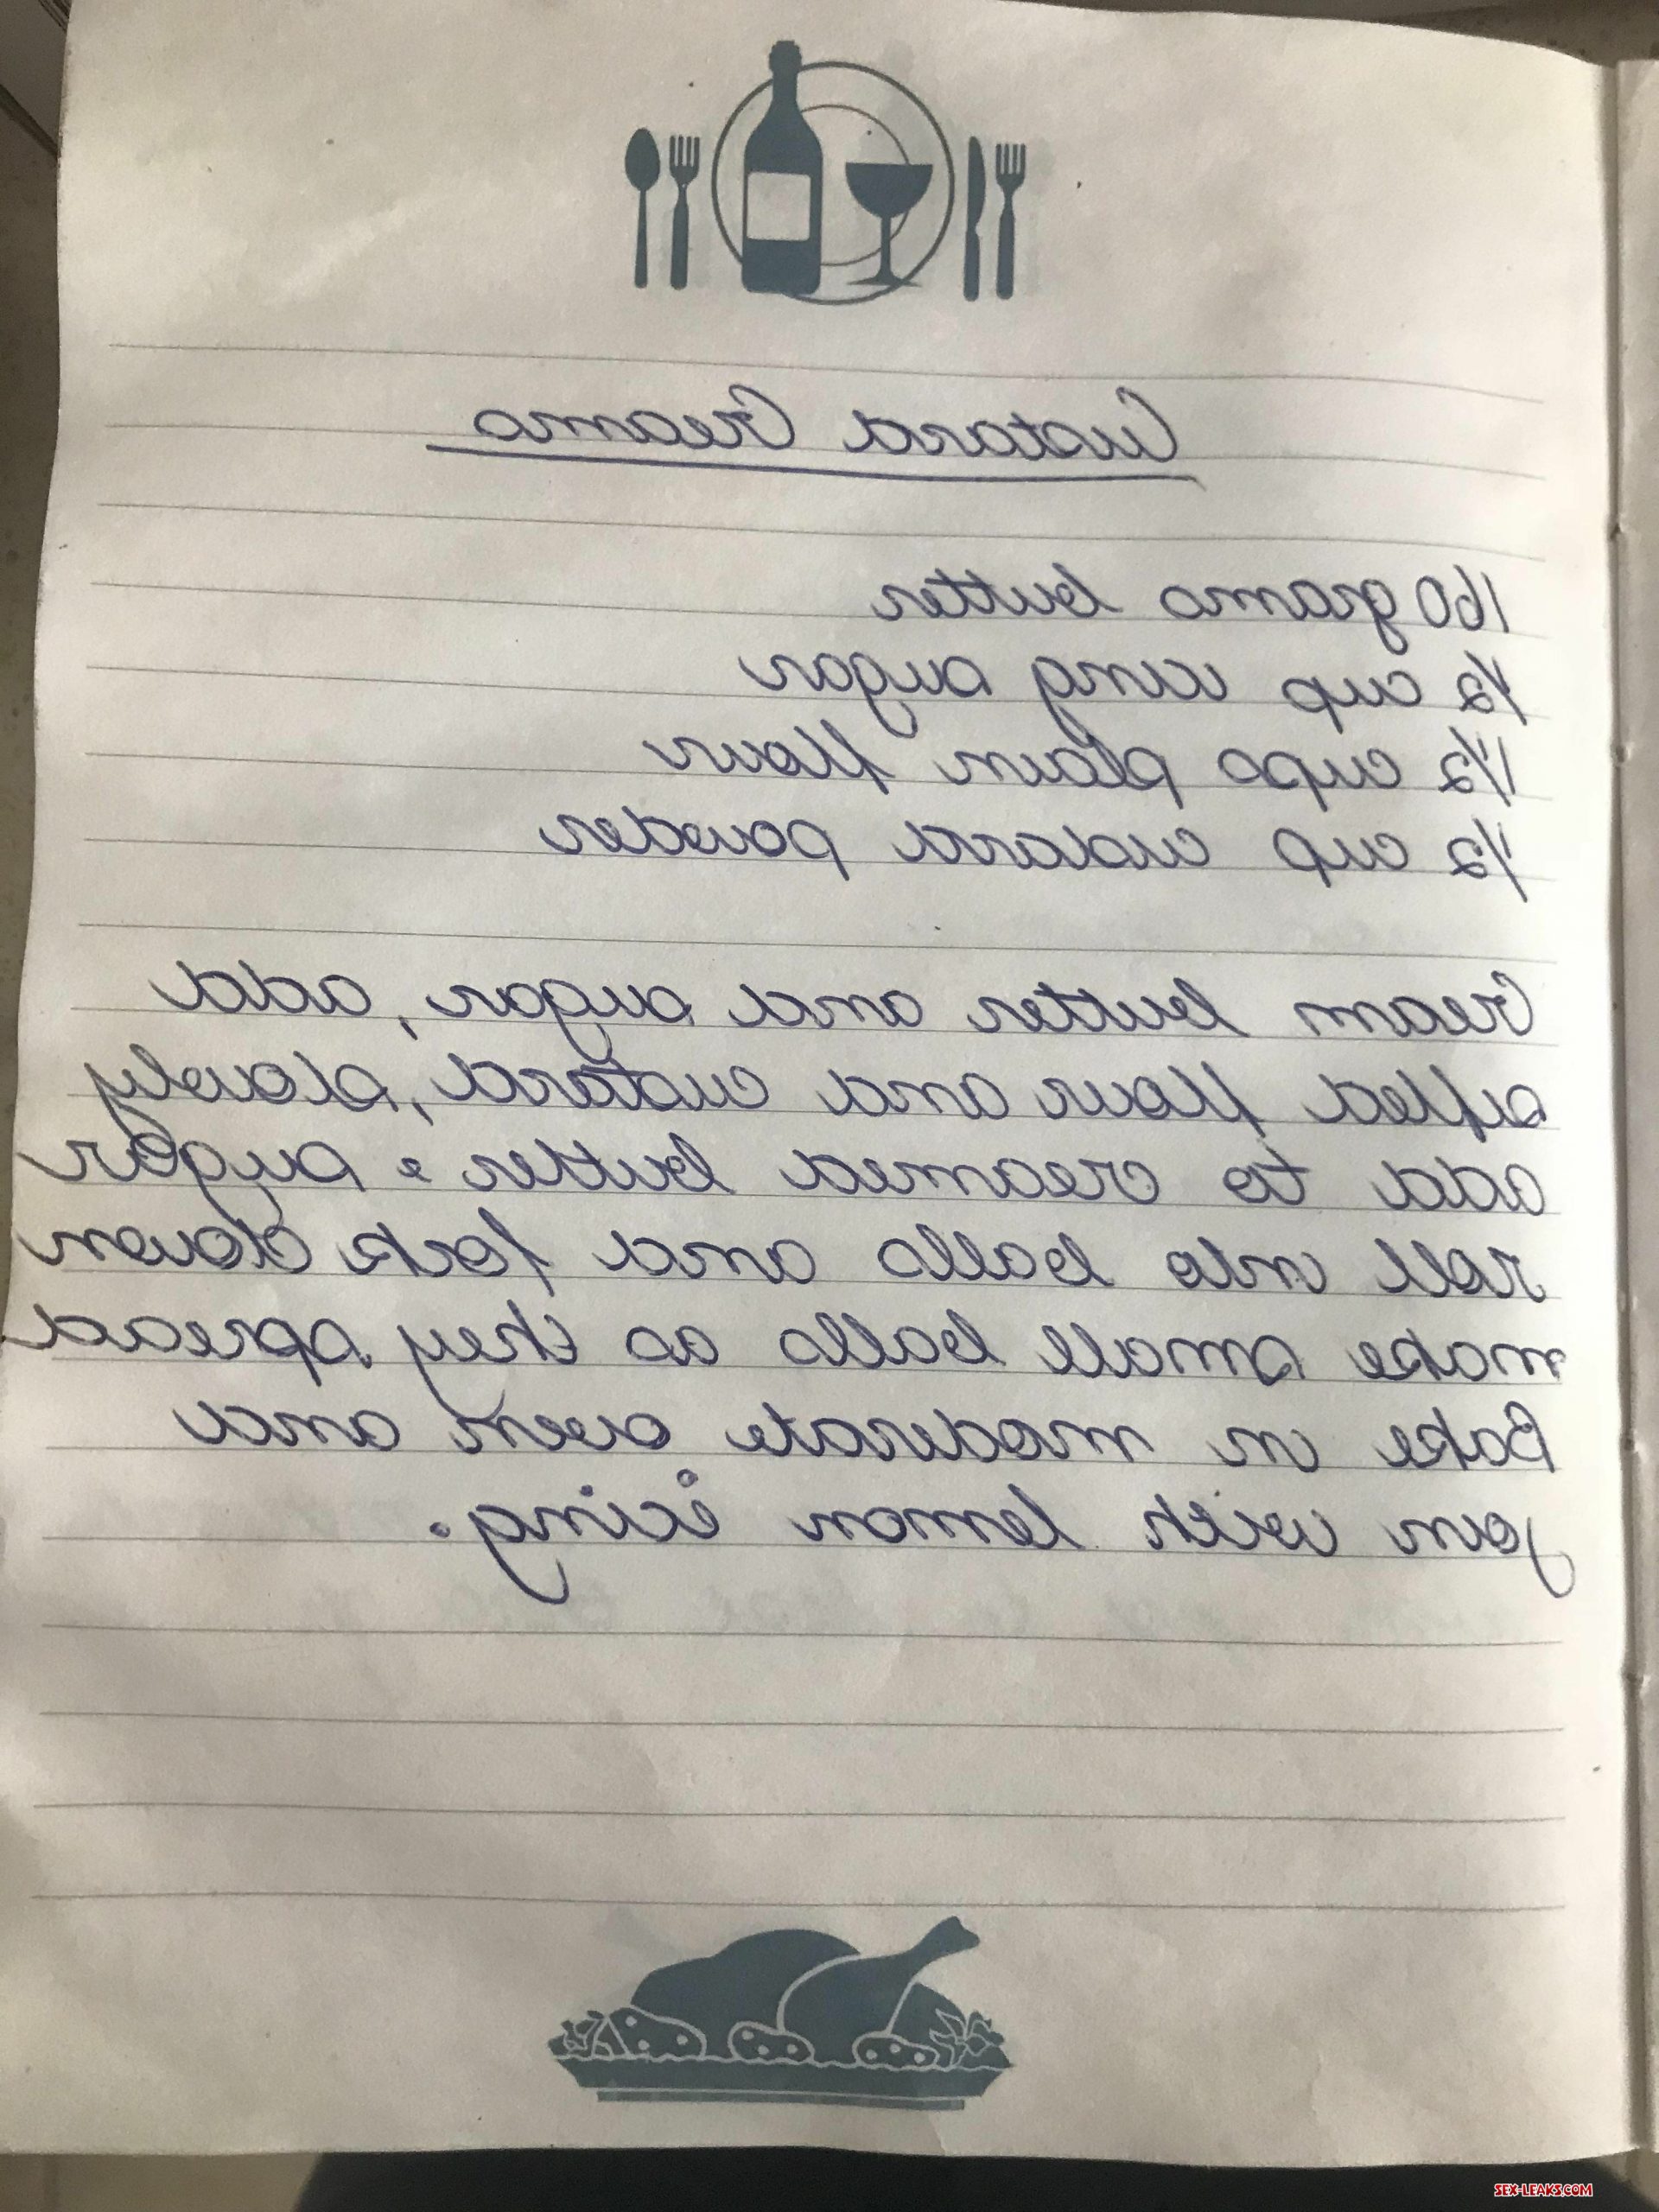 Custard Creams
160 grams butter
1/2 cup icing sugar
1 1/2 cups plain flour
1/2 cup custard powder
Cream butter and sugar, add
sifted flour and custard, slowly
add to creamed butter & sugar
roll into balls and fork down
make small balls as they spread
Bake in moderate oven and
join with lemon icing.
SEX-LEAKS.COM